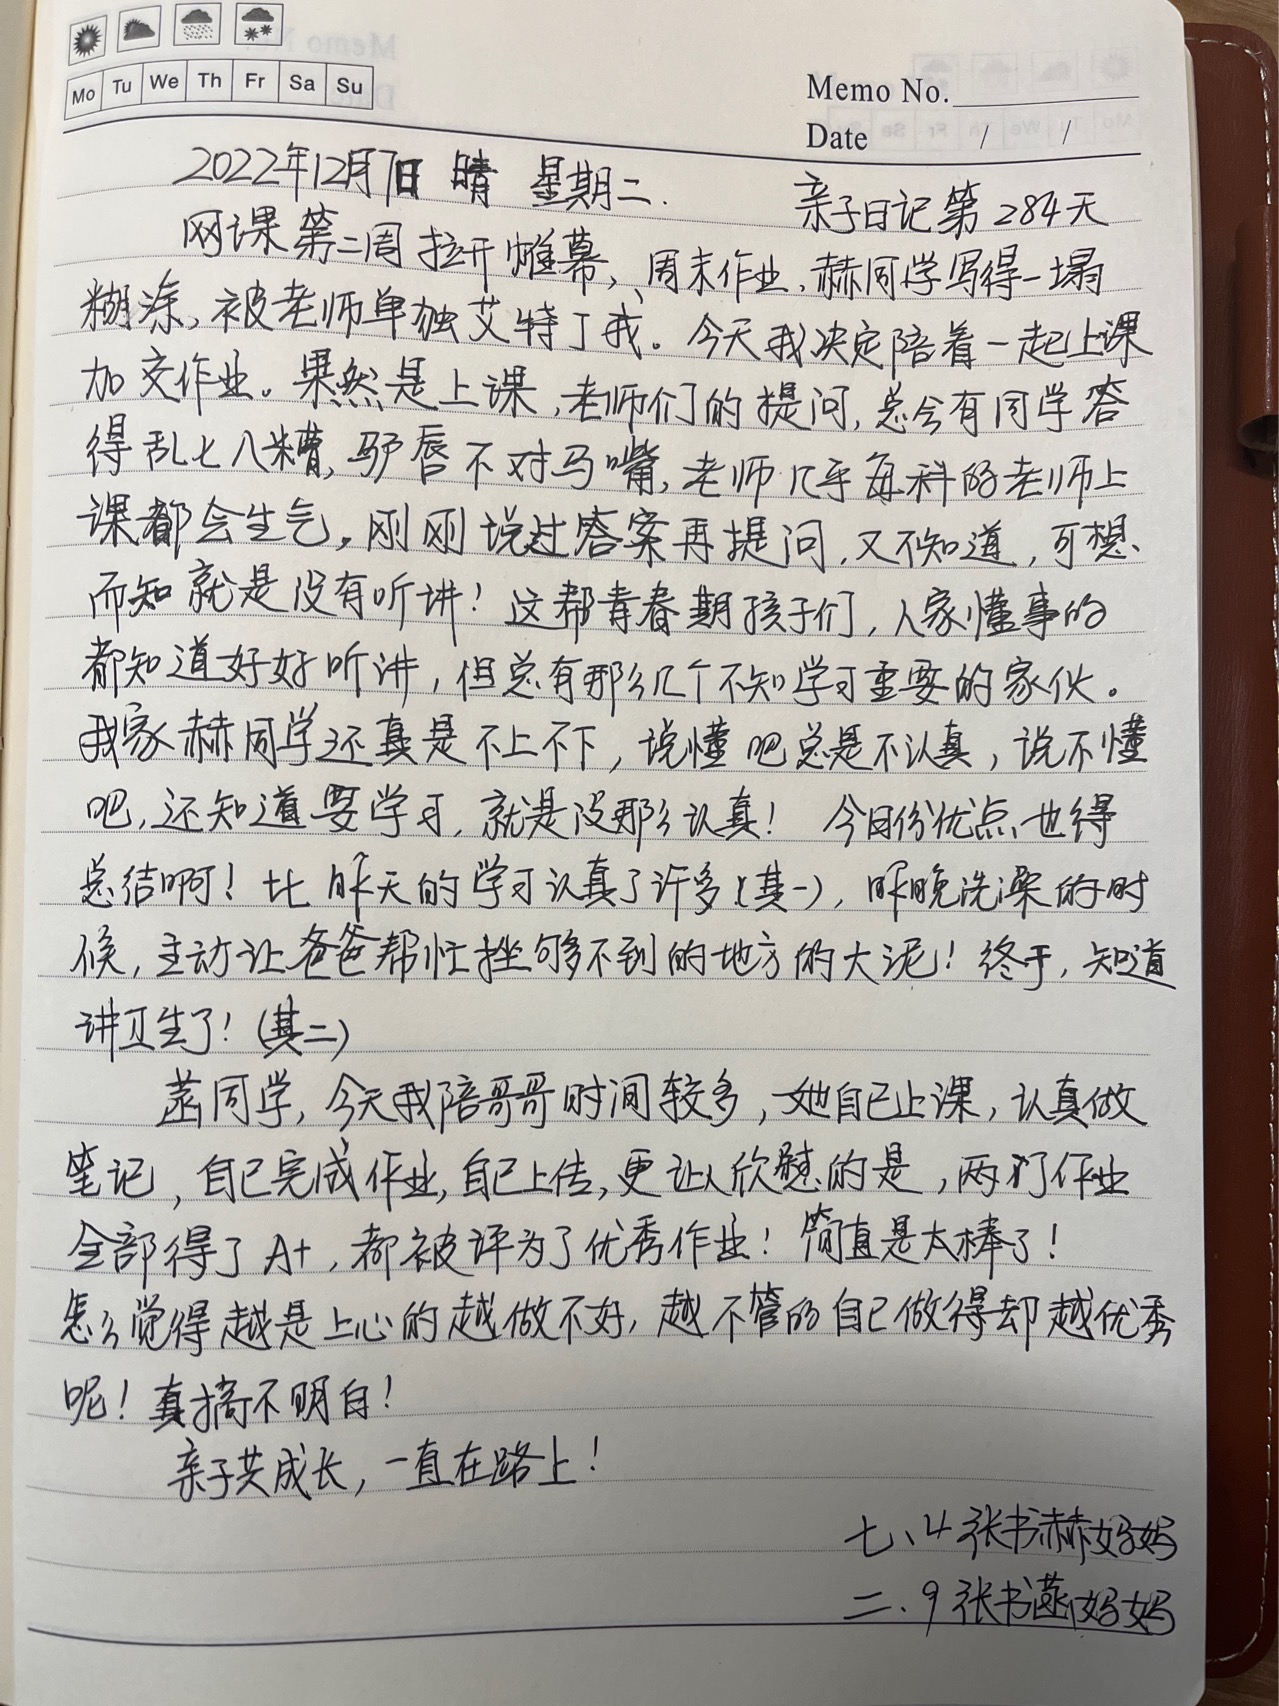 Mo Tu We Th Fr Sa Su
Memo No.
Date / /
2022年12月7日 晴 星期二.
亲子日记第284天
网课第二周拉开帷幕、周末作业,赫同学写得一塌
糊涂、被老师单独艾特了我。今天我决定陪着一起上课
加交作业。果然是上课,老师们的提问,总会有同学答
得乱七八糟,驴唇不对马嘴,老师几乎每科的老师上
课都会生气。刚刚说过答案再提问,又不知道,可想
而知就是没有听讲!这帮青春期孩子们,人家懂事的
都知道好好听讲,但总有那么几个不知学习重要的家伙。
我家赫同学还真是不上不下,说懂吧总是不认真,说不懂
吧,还知道要学习,就是没那么认真! 今日份优点、也得
总结啊!比昨天的学习认真了许多(其一),昨晚洗澡的时
候,主动让爸爸帮忙挫够不到的地方的大泥!终于,知道
讲卫生了!(其二)
同学,今天我陪哥哥时间较多,她自己上课,认真做
笔记,自己完成作业,自己上传,更让人欣慰的是,两份作业
全部得了A+,都被评为了优秀作业!简直是太棒了!
怎么觉得越是上心的越做不好,越不管的自己做得却越优秀
呢!真搞不明白!
亲子共成长,一直在路上!
七、4 张书赫妈妈
二、9 张书 妈妈